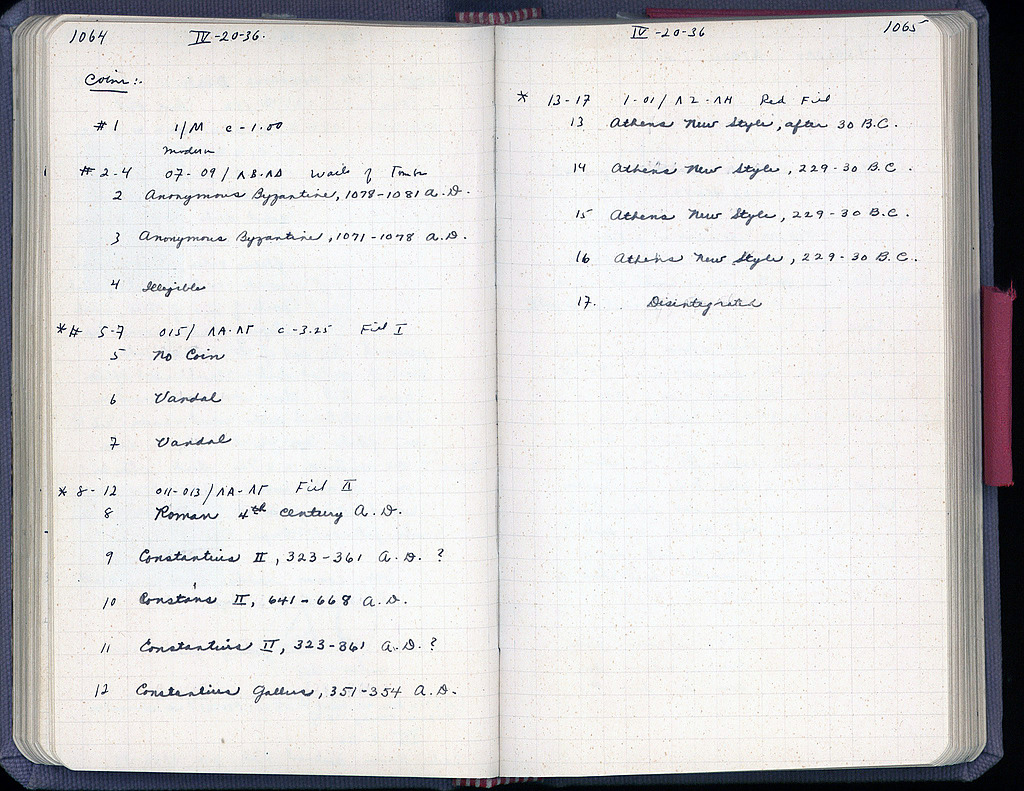 1064 IV-20-36.
Coins:-
#1 1/M c-1.00
modern
#2-4 07-09/ΛΒ-ΛΔ Wails of Tmbr
2 Anonymous Byzantine, 1078-1081 A.D.
3 Anonymous Byzantine, 1071-1078 A.D.
4 Illegible
*# 5-7 015/ΛΑ-ΛΓ c-3.25 Fill I
5 No Coin
6 Vandal
7 Vandal
* 8-12 011-013/ΛΑ-ΛΓ Fill II
8 Roman 4th century A.D.
9 Constantius II, 323-361 A.D. ?
10 Constans II, 641-668 A.D.
11 Constantius II, 323-361 A.D.?
12 Constantius Gallus, 351-354 A.D.
IV-20-36 1065
* 13-17 1-01/ΛΖ-ΛΗ Red Fill
13 Athens New Style, after 30 B.C.
14 Athens New Style, 229-30 B.C.
15 Athens New Style, 229-30 B.C.
16 Athens New Style, 229-30 B.C.
17. Disintegrated